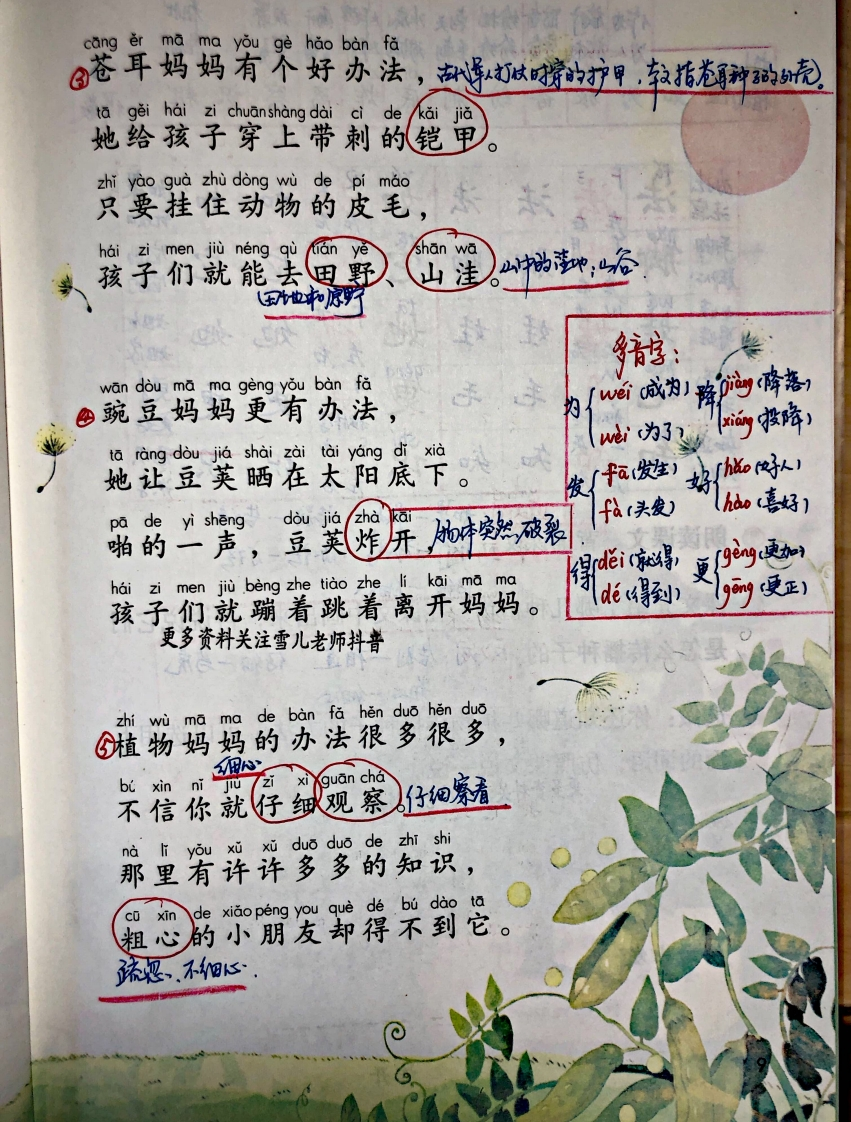 cāng ěr mā ma yǒu gè hǎo bàn fǎ
③苍耳妈妈有个好办法，古代军人打仗时穿的护甲，本文指苍耳种子的外壳。
tā gěi hái zi chuān shàng dài cì de kǎi jiǎ
她给孩子穿上带刺的铠甲。
zhǐ yào guà zhù dòng wù de pí máo
只要挂住动物的皮毛，
hái zi men jiù néng qù tián yě shān wā
孩子们就能去田野、山洼。山中的洼地；山谷
田地和原野
wān dòu mā ma gèng yǒu bàn fǎ
④豌豆妈妈更有办法，
tā ràng dòu jiá shài zài tài yáng dǐ xià
她让豆荚晒在太阳底下。
pā de yì shēng dòu jiá zhà kāi
啪的一声，豆荚炸开，物体突然破裂
hái zi men jiù bèng zhe tiào zhe lí kāi mā ma
孩子们就蹦着跳着离开妈妈。
更多资料关注雪儿老师抖音
多音字：
为 wéi（成为） wèi（为了）
降 jiàng（降落） xiáng（投降）
发 fā（发生） fà（头发）
好 hǎo（好人） hào（喜好）
得 děi dé（得到）
更 gèng（更加） gēng（更正）
zhí wù mā ma de bàn fǎ hěn duō hěn duō
⑤植物妈妈的办法很多很多，
细心
bú xìn nǐ jiù zǐ xì guān chá
不信你就仔细观察。仔细察看
nà lǐ yǒu xǔ xǔ duō duō de zhī shi
那里有许许多多的知识，
cū xīn de xiǎo péng you què dé bú dào tā
粗心的小朋友却得不到它。
疏忽、不细心．
9